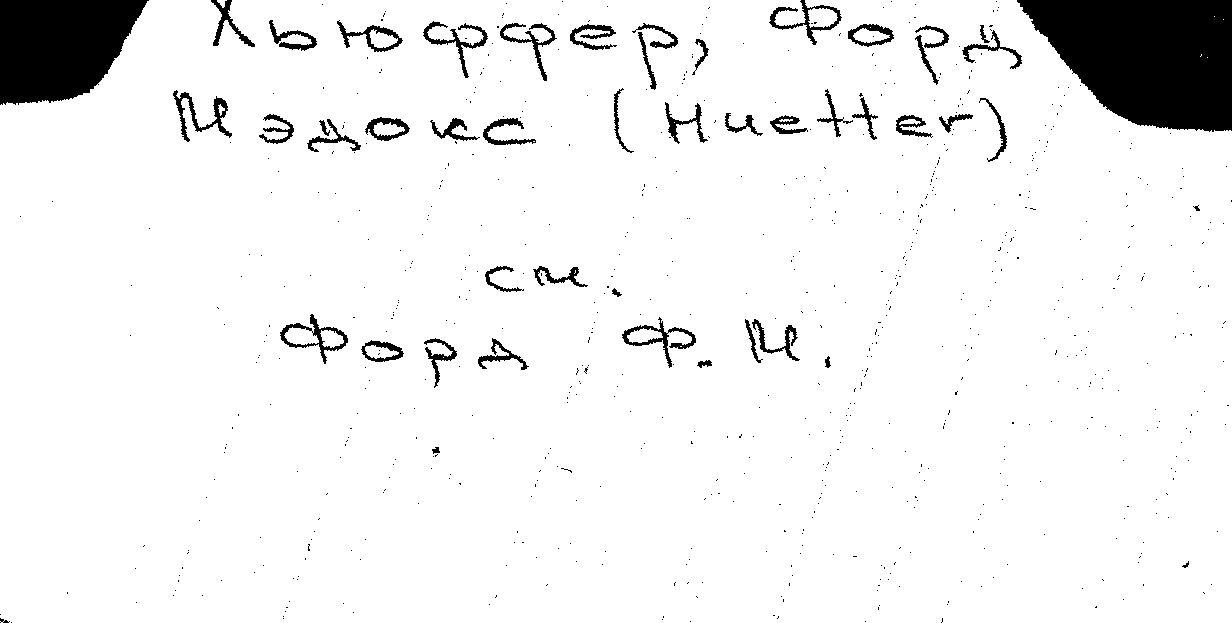 Хьюффер, Форд
Мэдокс (Huetter)
см.
Форд Ф. М.